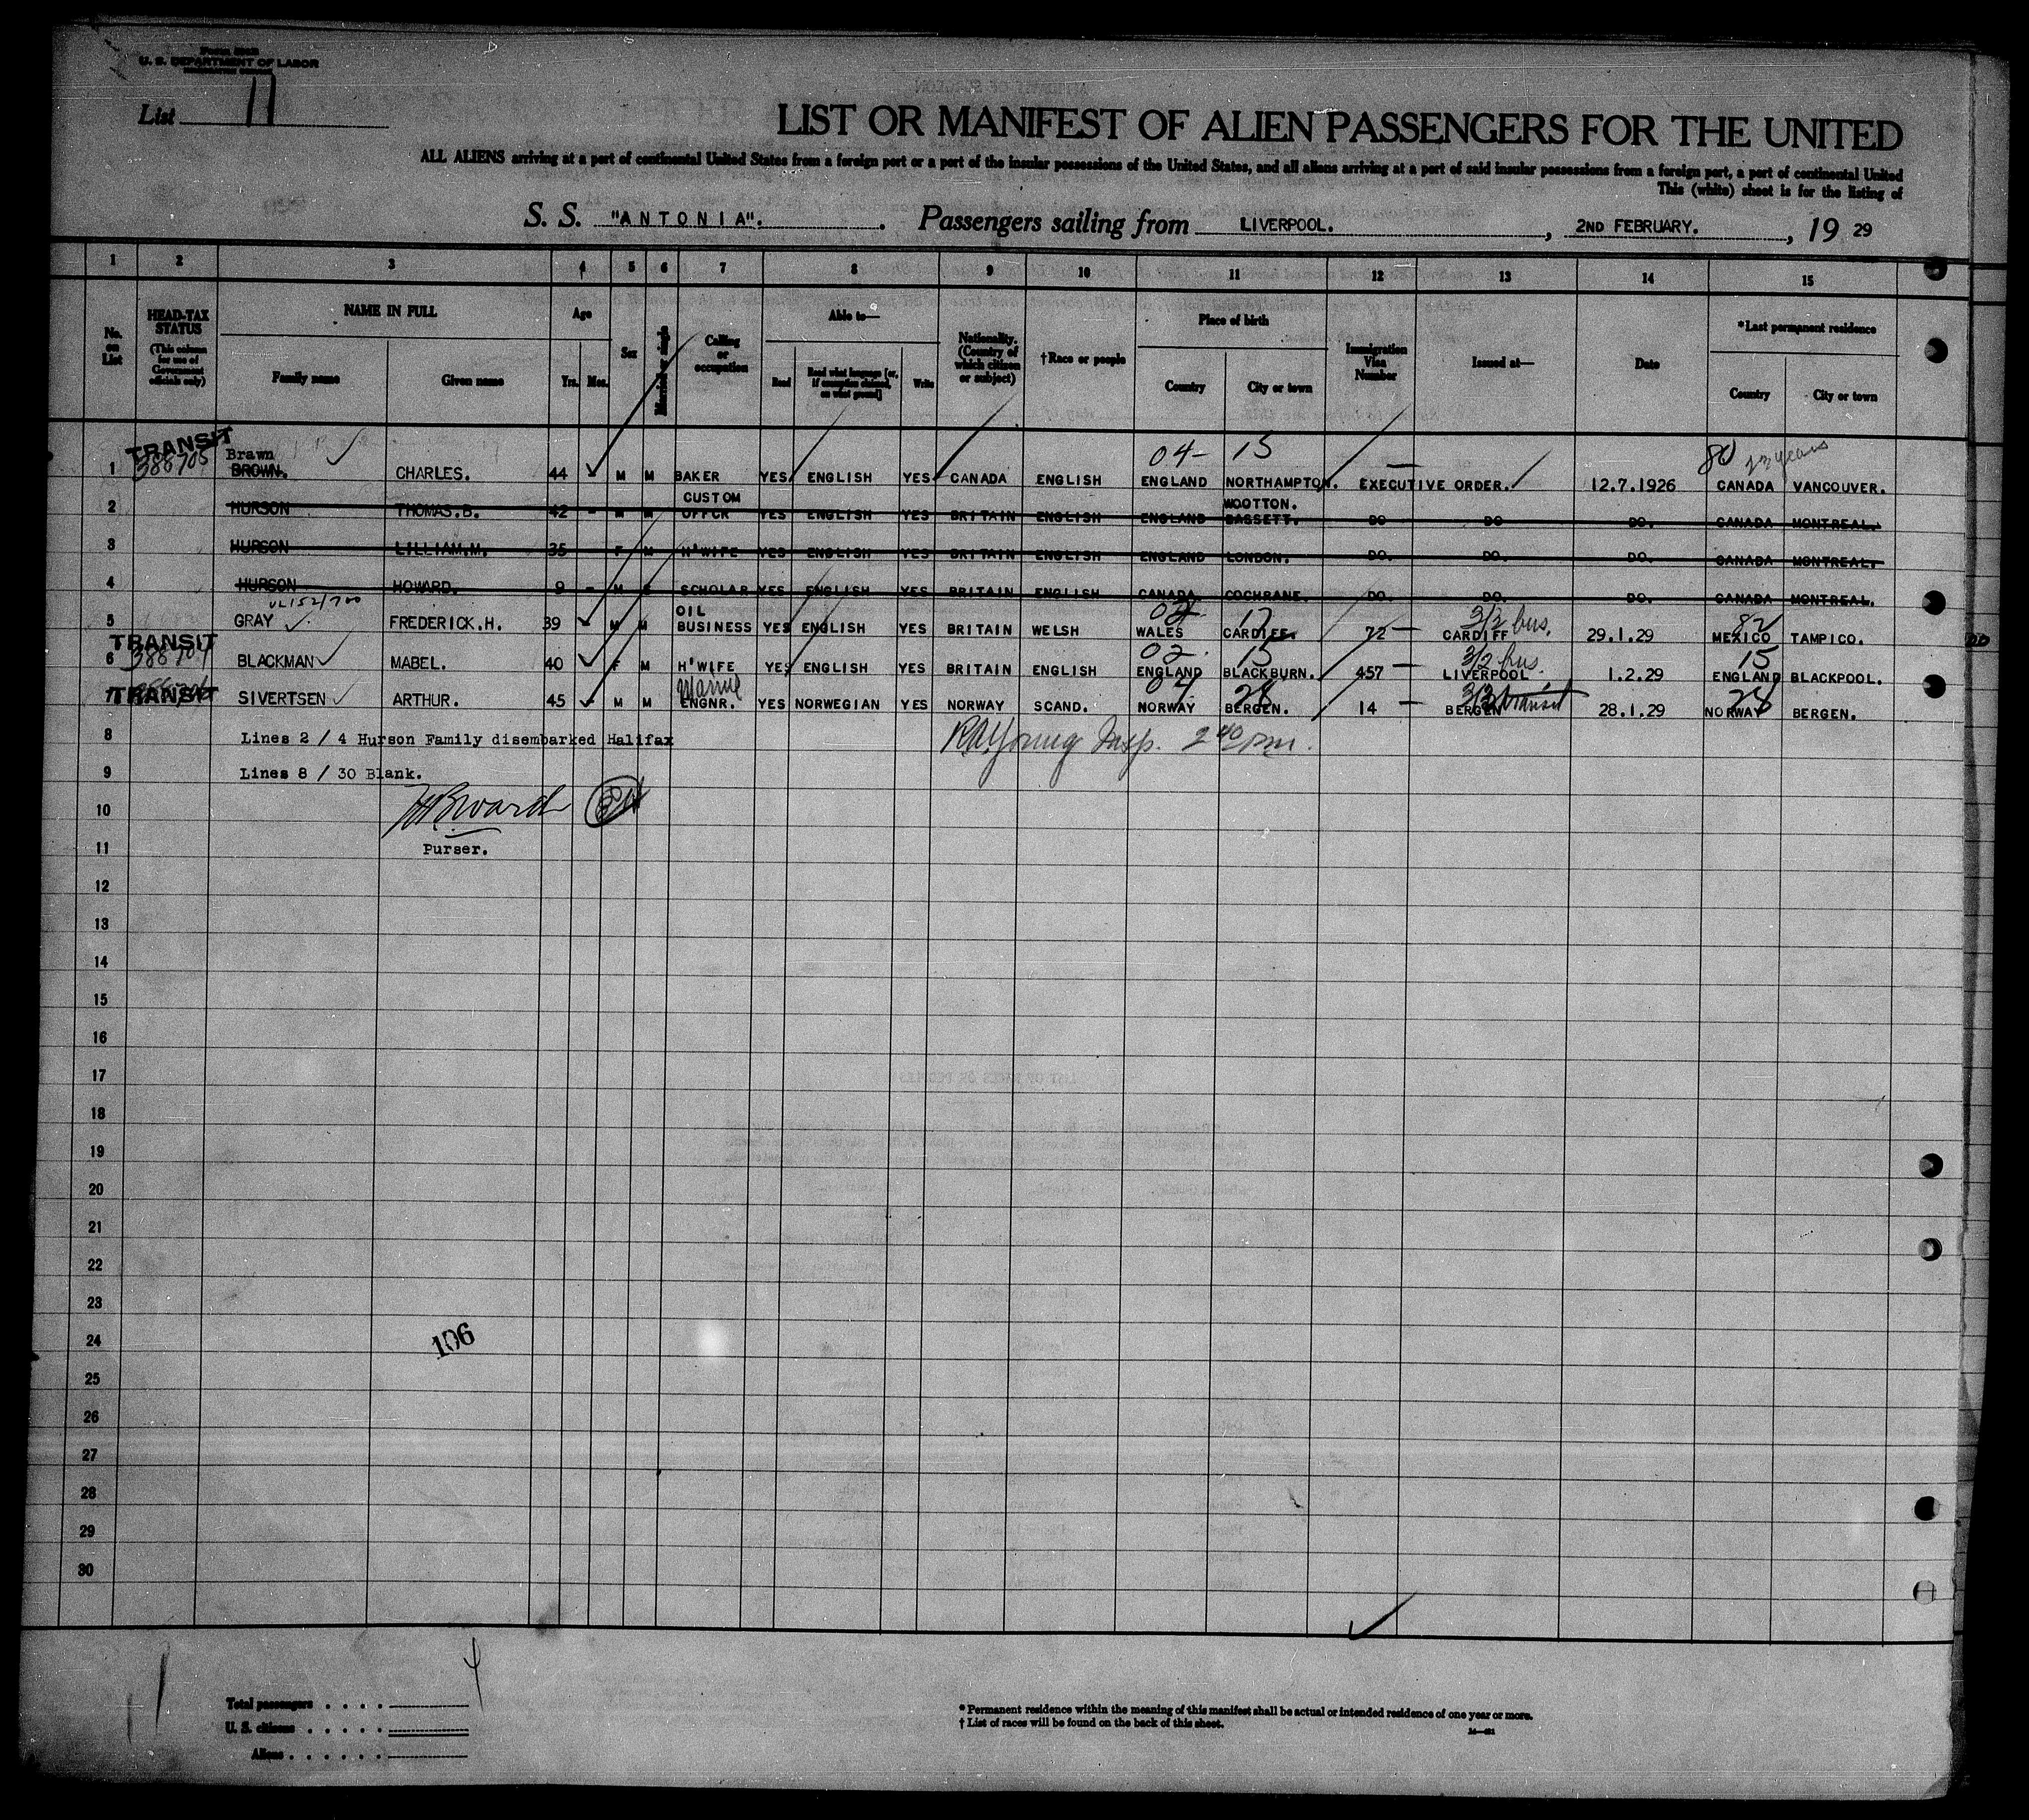 U. S. DEPARTMENT OF LABOR
List 11
LIST OR MANIFEST OF ALIEN PASSENGERS FOR THE UNITED
ALL ALIENS arriving at a port of continental United States from a foreign port or a port of the insular possessions of the United States, and all aliens arriving at a port of said insular possessions from a foreign port, a port of continental United
This (white) sheet is for the listing of
S. S. "ANTONIA". Passengers sailing from LIVERPOOL. , 2ND FEBRUARY. , 19 29
1 2 3 4 5 6 7 8 9 10 11 12 13 14 15
No. on List
HEAD-TAX STATUS (This column for use of Government officials only)
NAME IN FULL
Family name Given name
Age
Yrs. Mos.
Sex
Married or single
Calling or occupation
Able to—
Read Read what language [or, if exemption claimed, on what ground] Write
Nationality. (Country of which citizen or subject)
†Race or people
Place of birth
Country City or town
Immigration Visa Number
Issued at—
Date
*Last permanent residence
Country City or town
TRANSIT
388705
Brawn
04- 15 — 80 23 years
1 BROWN. CHARLES. 44 M M BAKER YES ENGLISH YES CANADA ENGLISH ENGLAND NORTHAMPTON. EXECUTIVE ORDER. 12.7.1926 CANADA VANCOUVER.
2 HURSON THOMAS.B. 42 - M M CUSTOM OFFCR YES ENGLISH YES BRITAIN ENGLISH ENGLAND WOOTTON. BASSETT. DO DO DO. CANADA MONTREAL.
3 HURSON LILLIAM.M. 35 F M H'WIFE YES ENGLISH YES BRITAIN ENGLISH ENGLAND LONDON. DO. DO. DO. CANADA MONTREAL.
4 HURSON HOWARD. 9 - M S SCHOLAR YES ENGLISH YES BRITAIN ENGLISH CANADA. COCHRANE. DO. DO. DO. CANADA MONTREAL.
02 17 3/2 bus. 82
5 GRAY FREDERICK.H. 39 M M OIL BUSINESS YES ENGLISH YES BRITAIN WELSH WALES CARDIFF. 72 — CARDIFF 29.1.29 MEXICO TAMPICO.
TRANSIT
02 15 3/2 bus. 15
6 BLACKMAN MABEL. 40 F M H'WIFE YES ENGLISH YES BRITAIN ENGLISH ENGLAND BLACKBURN. 457 — LIVERPOOL 1.2.29 ENGLAND BLACKPOOL.
TRANSIT
Marine 04 28 3/3 transit 28
7 SIVERTSEN ARTHUR. 45 M M ENGNR. YES NORWEGIAN YES NORWAY SCAND. NORWAY BERGEN. 14 — BERGEN 28.1.29 NORWAY BERGEN.
8 Lines 2 / 4 Hurson Family disembarked Halifax
Young Insp. 2 40 pm.
9 Lines 8 / 30 Blank.
10 Ward
11 Purser.
12
13
14
15
16
17
18
19
20
21
22
23
24 106
25
26
27
28
29
30
Total passengers
U. S. citizens
Aliens
*Permanent residence within the meaning of this manifest shall be actual or intended residence of one year or more.
†List of races will be found on the back of this sheet.